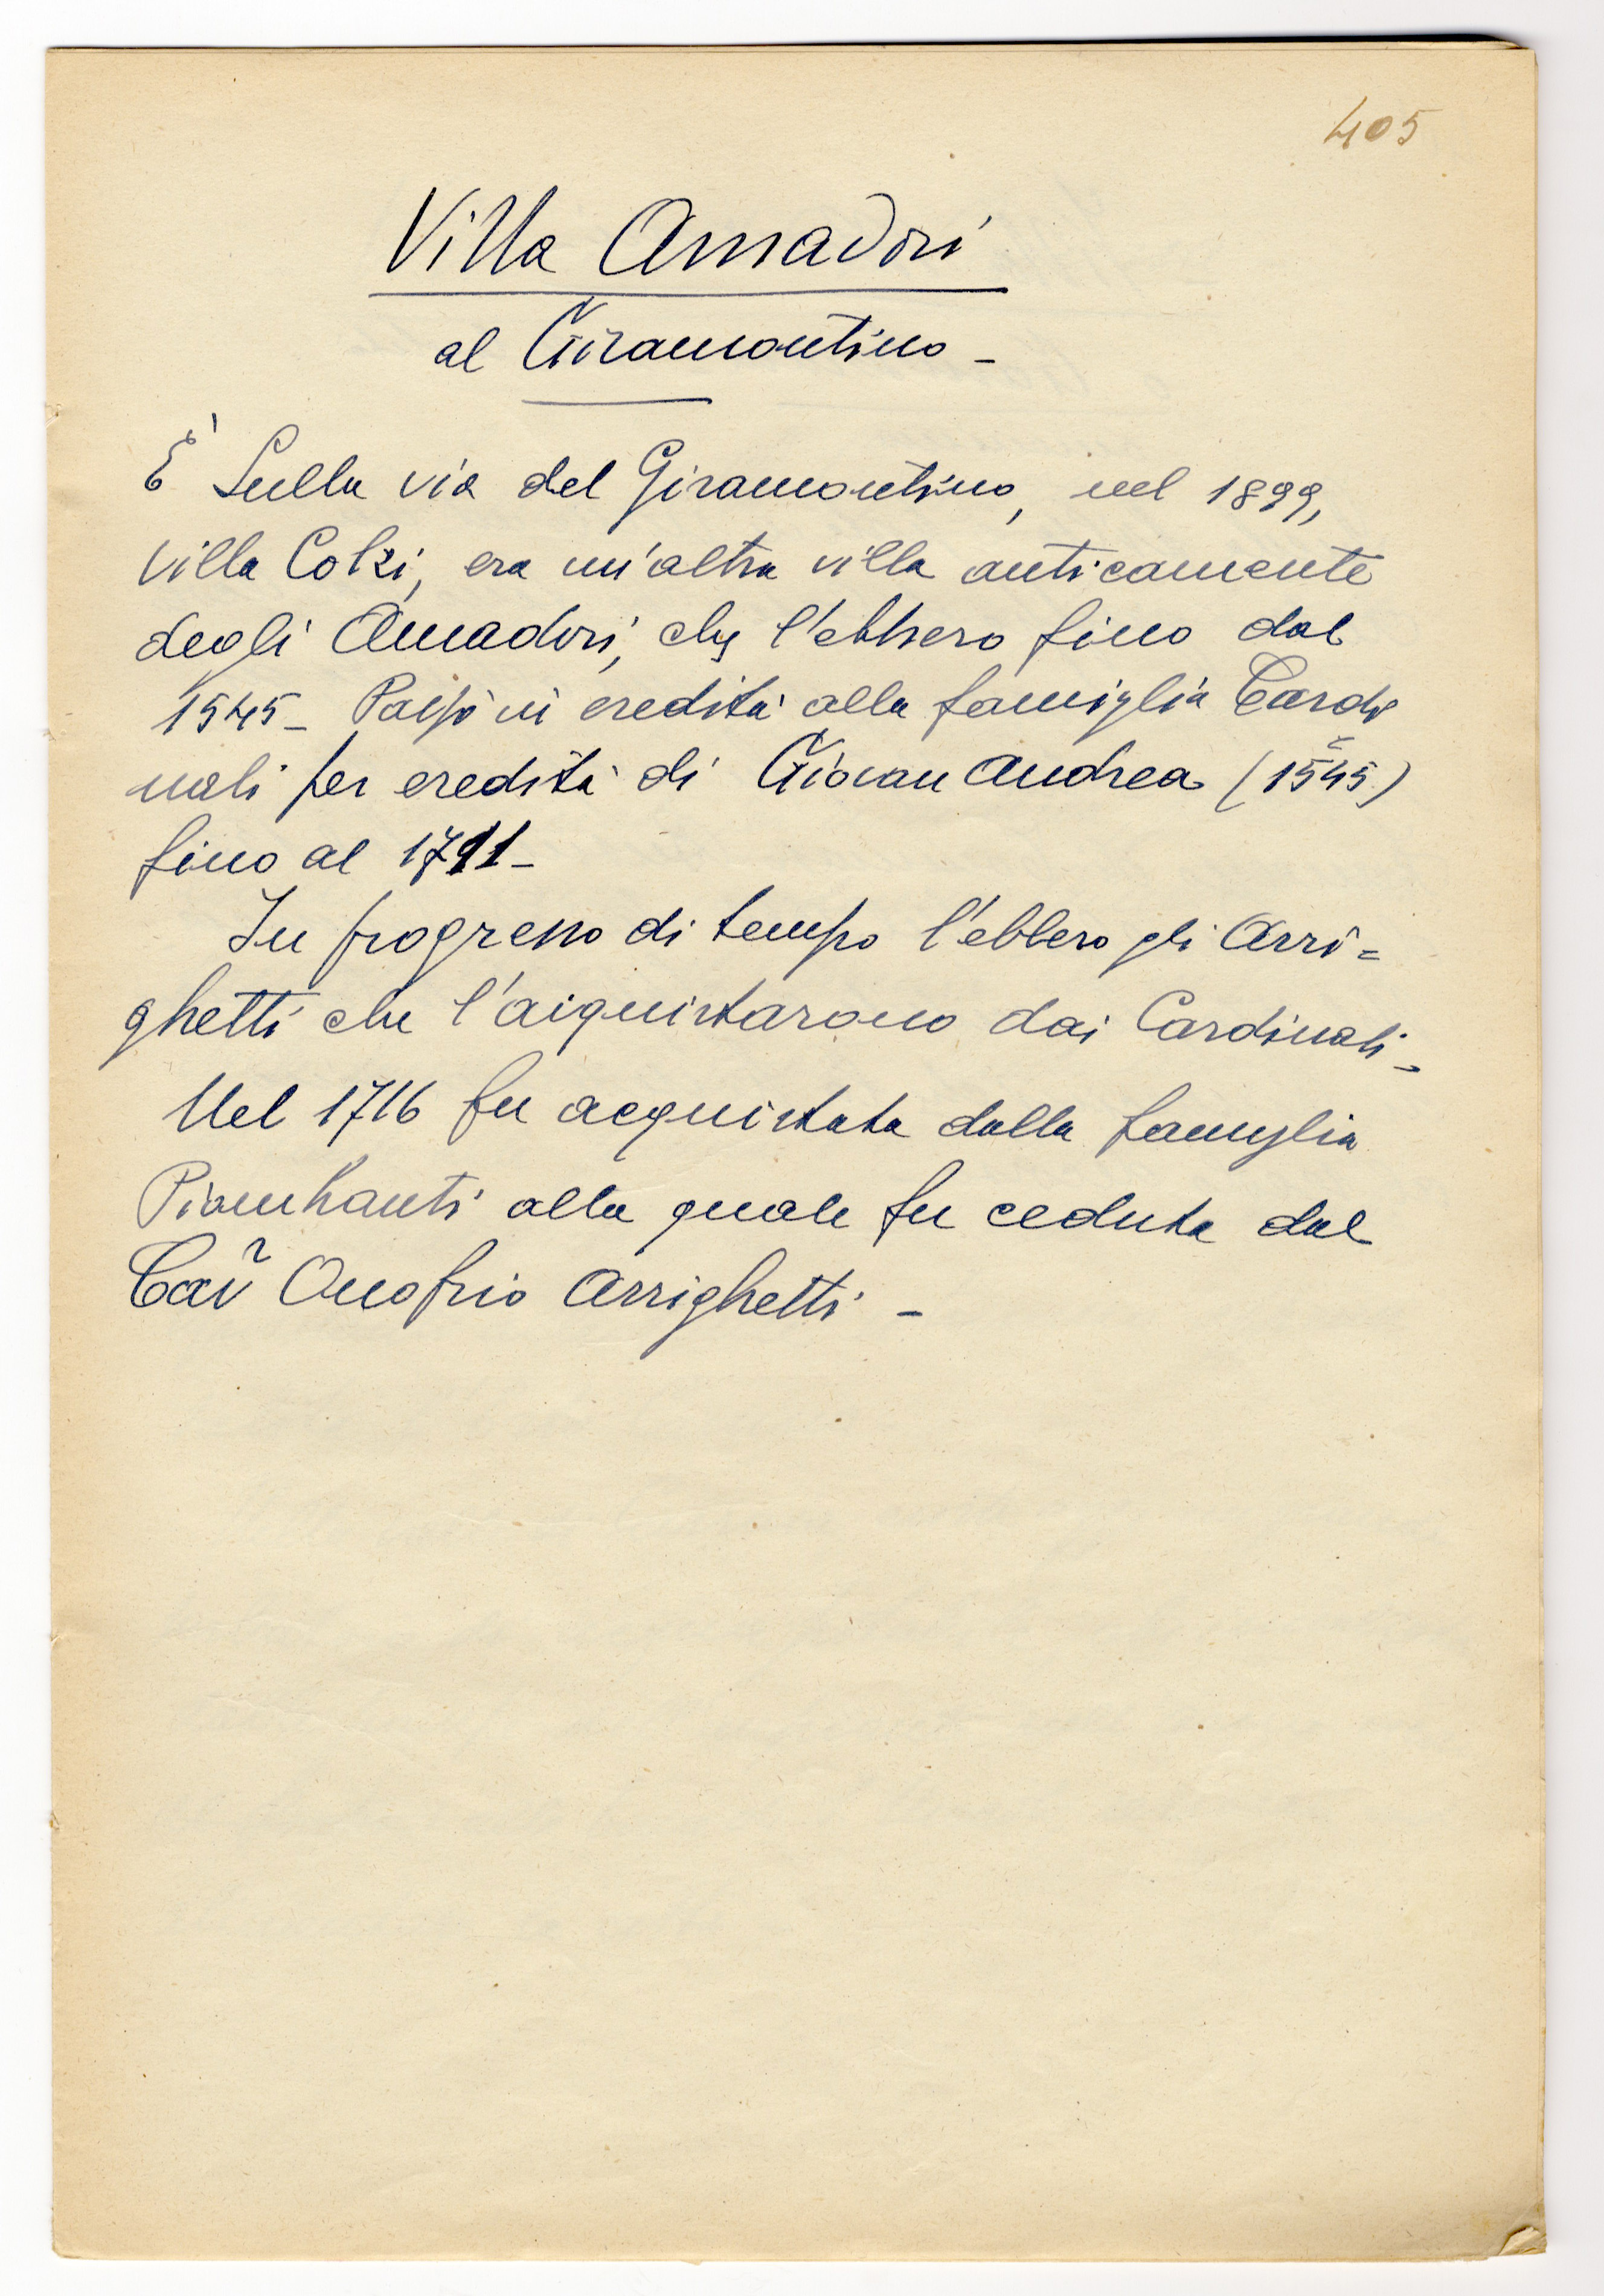 405
Villa Amadori
al Giramontino -
È Sulla via del Giramontino, nel 1899,
Villa Colzi, era un'altra villa anticamente
degli Amadori, che l'ebbero fino dal
1545 - Passò in eredità alla famiglia Cardi
nali per eredità di Giovan Andrea (1545)
fino al 1711 -
In progresso di tempo l'ebbero gli Arri=
ghetti che l'acquistarono dai Cardinali -
Nel 1716 fu acquistata dalla famiglia
alla quale fu ceduta dal
Cav Onofrio Arrighetti -